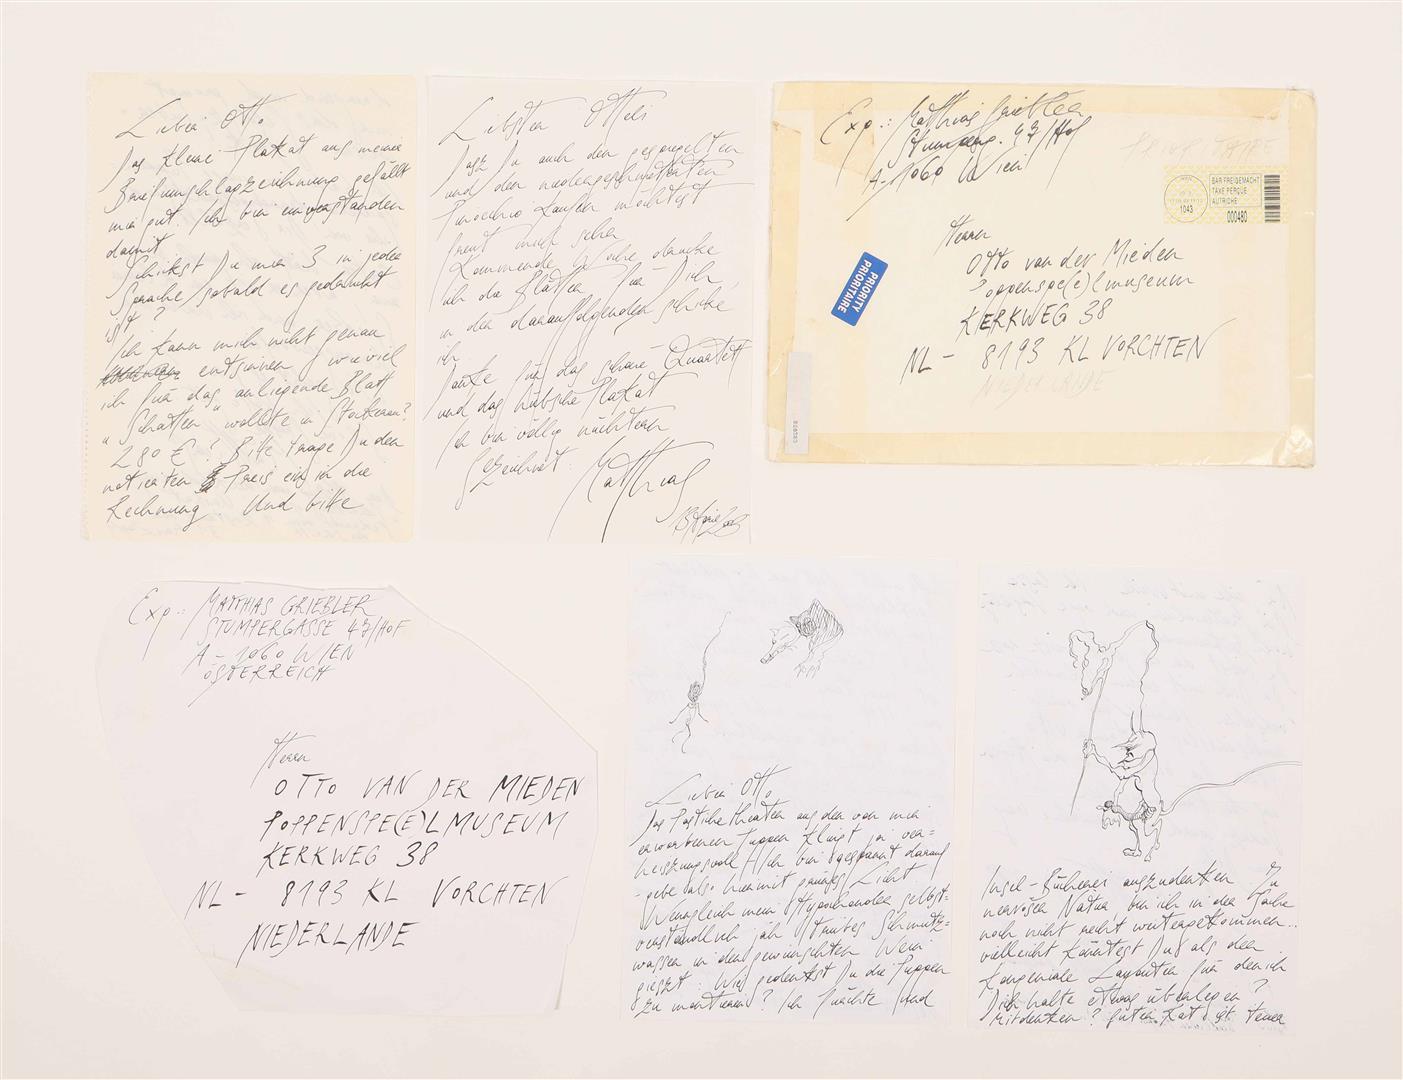 Lieber Otto
Das kleine Plakat aus meiner
gefällt
mir gut. Ich bin einverstanden
damit
Schickst Du mir 3 in jeder
Sprache, sobald es gedruckt
ist?
Ich kann mich nicht genau
entsinnen wieviel
ich für das anliegende Blatt
"Schatten" wollte in Stockerau?
280 €? Bitte trage Du den
notierten Preis ein in die
Rechnung. Und bitte
Liebster Otteli
Dass Du auch den gespiegelten
und den
Pinocchio kaufen möchtest
freut mich sehr
Kommende Woche drucke
ich die Blätter für Dich
in der darauffolgenden schicke
ich.
Danke für das schöne Quartett
und das hübsche Plakat
Ich bin völlig nüchtern
Gezeichnet: Matthias
13 April 2003
Exp.: Matthias Griebler
Stumperg. 47/Hof
A-1060 Wien
PRIORITAIRE
BAR FREIGEMACHT
TAXE PERÇUE
AUTRICHE
1043
000480
PRIORITY
PRIORITAIRE
Herrn
Otto van der Mieden
Poppenspe(e)lmuseum
KERKWEG 38
NL- 8193 KL VORCHTEN
NIEDERLANDE
Exp.: MATTHIAS GRIEBLER
STUMPERGASSE 47/HOF
A-1060 WIEN
ÖSTERREICH
Herrn
OTTO VAN DER MIEDEN
POPPENSPE(E)LMUSEUM
KERKWEG 38
NL- 8193 KL VORCHTEN
NIEDERLANDE
Lieber Otto
Das Pastiche theater aus den von mir
erworbenen Puppen klingt ja ver=
heiszungsvoll! Ich bin gespannt darauf
- gebe also hiermit grünes Licht
Wenngleich mein Hypochonder selbst=
verständlich jäh Schmutz=
wasser in den gewünschten Wein
gieszt: Wie gedenkst Du die Puppen
zu montieren? Ich fürchte und
Insel-Bücherei auszudenken. Zu
nervöser Natur, bin ich in der Sache
noch nicht recht weitergekommen...
vielleicht könntest Du als der
Kongeniale Layouter für den ich
Dich halte etwas überlegen?
Mitdenken? Guter Rat ist teuer